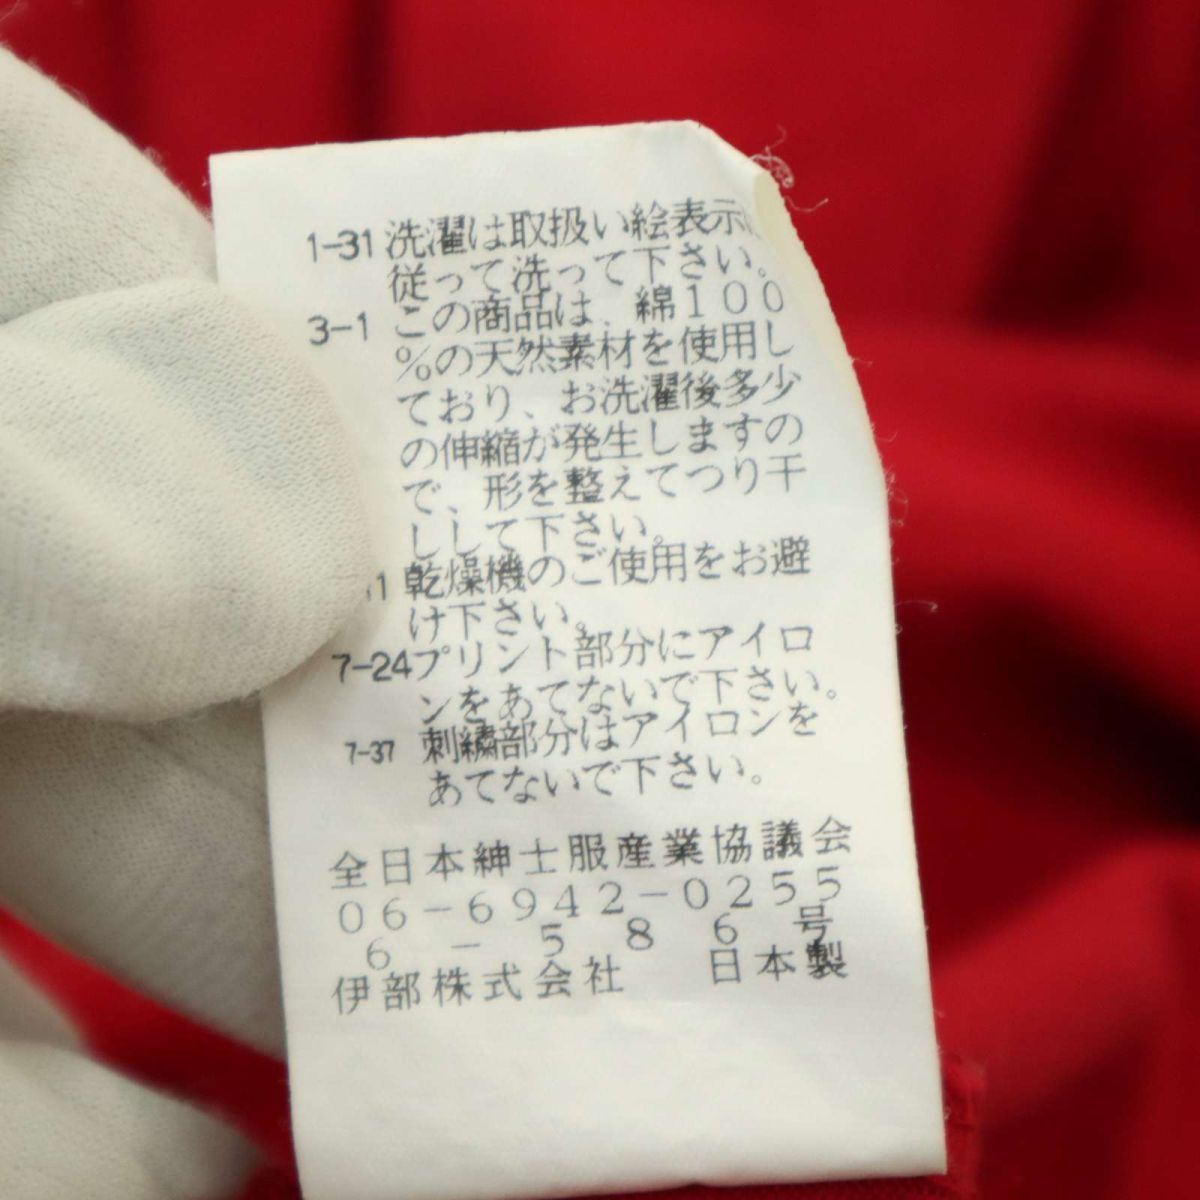 1-31 洗濯は取扱い絵表示に
従って洗って下さい。
3-1 この商品は、綿100
%の天然素材を使用し
ており、お洗濯後多少
の伸縮が発生しますの
で、形を整えてつり干
しして下さい。
乾燥機のご使用をお避
け下さい。
7-24 プリント部分にアイロ
ンをあてないで下さい。
7-37 刺繍部分はアイロンを
あてないで下さい。
全日本紳士服産業協議会
06-6942-0255
6-586号
伊部株式会社 日本製